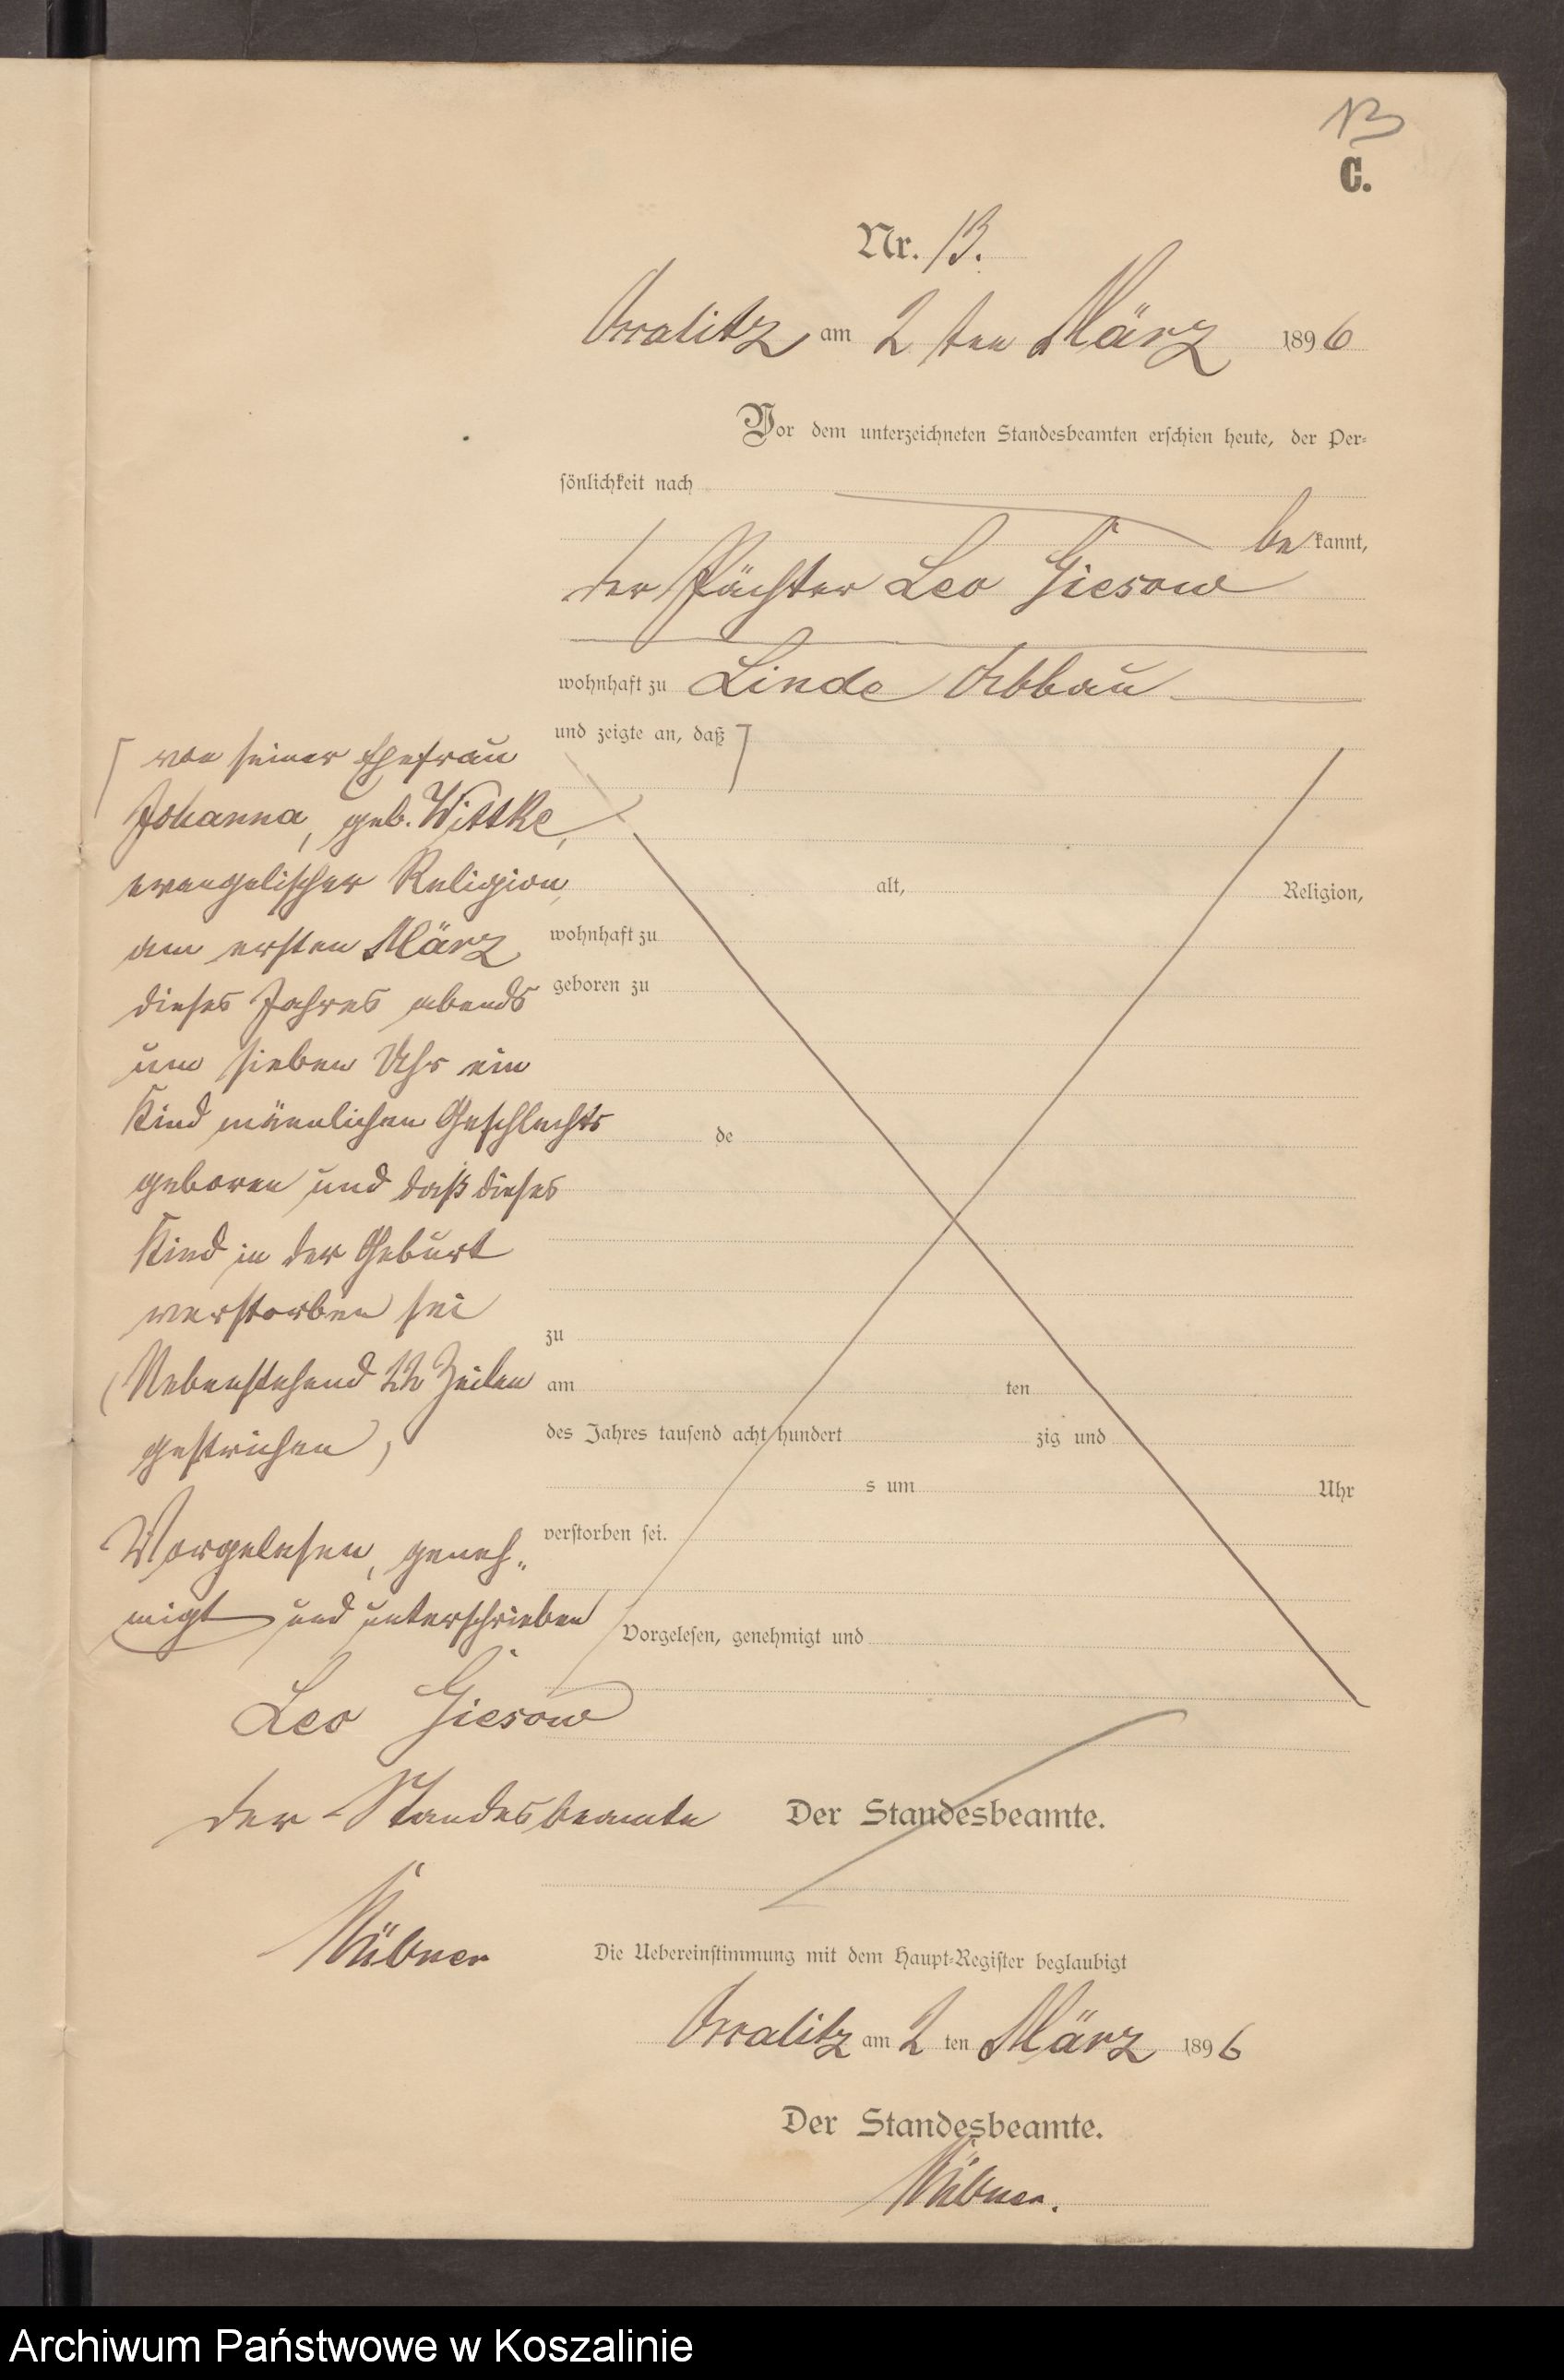 13
C.
Nr. 13.
am 2 ten März 1896
Vor dem unterzeichneten Standesbeamten erschien heute, der Per-
sönlichkeit nach
bekannt,
der Pächter Leo Giesow
wohnhaft zu Linde Abbau
und zeigte an, daß
von seiner Ehefrau
Johanna, geb. Wittke,
evangelischer Religion,
am ersten März
dieses Jahres abends
um sieben Uhr ein
Kind männlichen Geschlechts
geboren und daß dieses
Kind in der Geburt
verstorben sei
(Nebenstehend 22 Zeilen
gestrichen)
Vorgelesen, geneh-
migt und unterschrieben
Leo Giesow
der Standesbeamte
alt, Religion,
wohnhaft zu
geboren zu
de
zu
am ten
des Jahres tausend acht hundert zig und
s um Uhr
verstorben sei.
Vorgelesen, genehmigt und
Der Standesbeamte.
Die Uebereinstimmung mit dem Haupt-Register beglaubigt
am 2 ten März 1896
Der Standesbeamte.
Archiwum Państwowe w Koszalinie